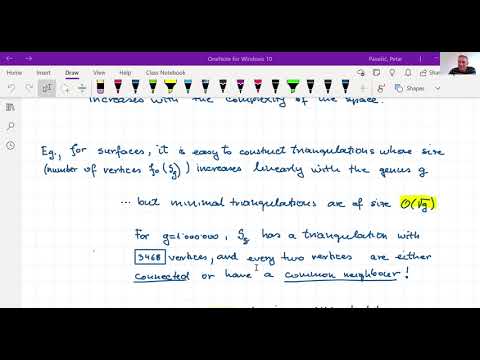 OneNote for Windows 10
Pavešić, Petar
Home Insert Draw View Help Class Notebook
increases with the complexity of the space.
Eg., for surfaces, it is easy to construct triangulations whose size
(number of vertices f₀(Sg)) increases linearly with the genus g
... but minimal triangulations are of size O(√g)
For g=1.000.000, Sg has a triangulation with
3468 vertices, and every two vertices are either
connected or have a common neighbour!